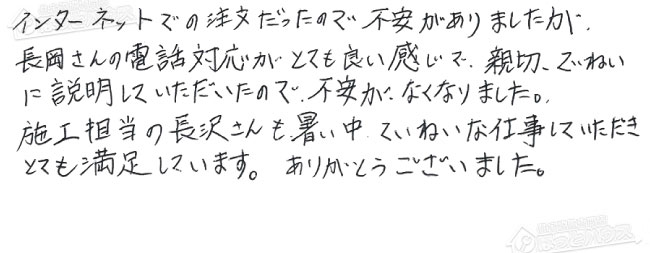 インターネットでの注文だったので不安がありましたが、
長岡さんの電話対応がとても良い感じで、親切、ていねい
に説明していただいたので、不安が、なくなりました。
施工担当の長沢さんも暑い中、ていねいな仕事していただき
とても満足しています。 ありがとうございました。